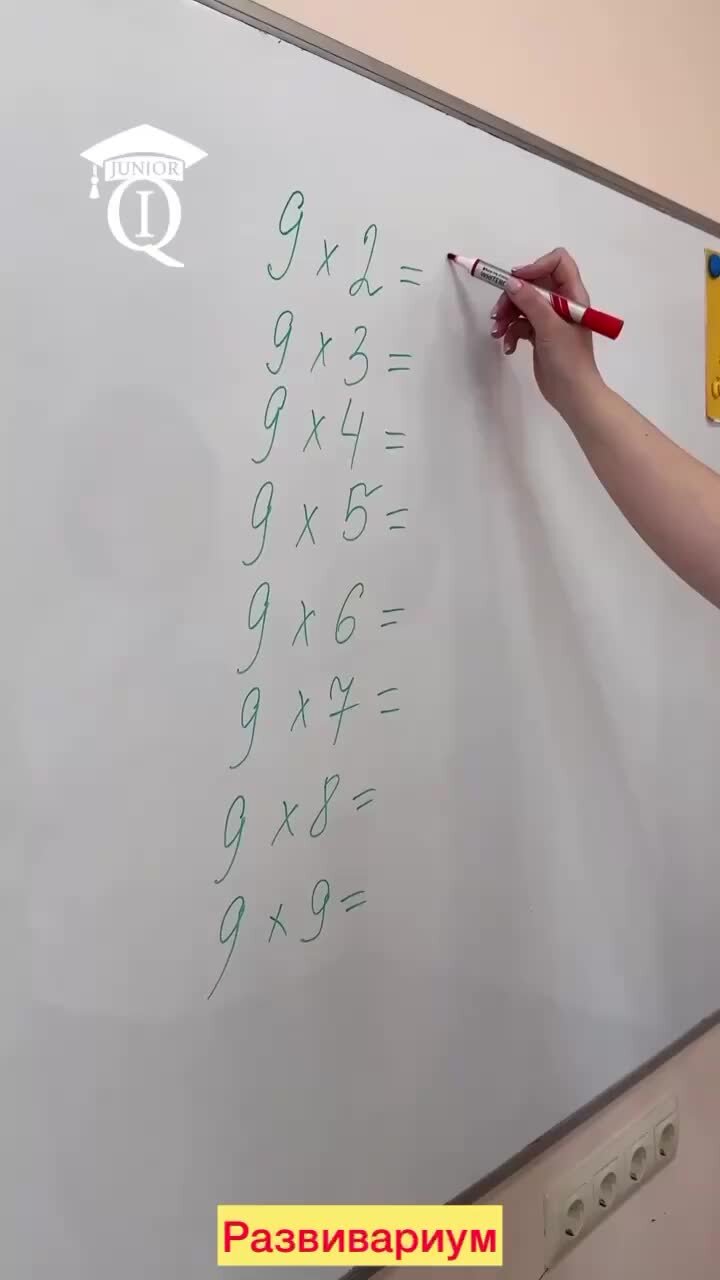 JUNIOR
IQ
9 x 2 =
9 x 3 =
9 x 4 =
9 x 5 =
9 x 6 =
9 x 7 =
9 x 8 =
9 x 9 =
Развивариум